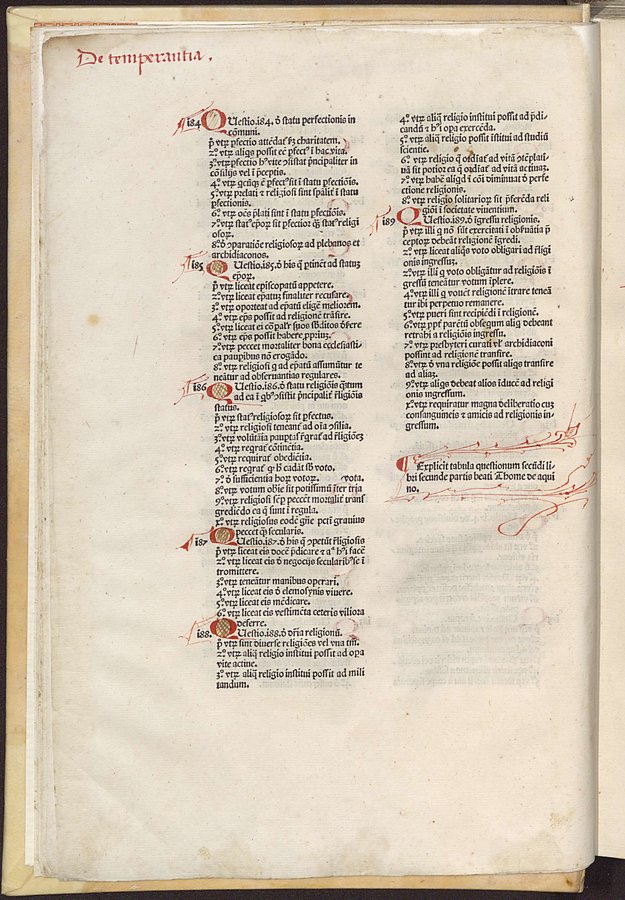 De temperantia.
184 QUestio.184.ō statu perfectionis in
cōmuni.
p̄ vtrꝫ pfectio attēdat' ẜꝫ charitatem.
2ͦ.vtrꝫ aliqs possit eē pfect' ī hac vita.
3ͦ.vtrꝫ pfectio hꝰ vite ꝯsistat pncipaliter in
cōsilijs vel ī pceptis.
4ͦ. vtrꝫ qcūqꝫ ē pfect' sit ī statu pfectiōis.
5ͦ.vtrꝫ prelati ⁊ religiosi sint spālit' ī statu
pfectionis.
6ͦ. vtrꝫ oēs plati sint ī statu pfectiōis.
7ͦ.vtrꝫ stat' epoꝝ sit pfectior qꝫ stat' religi
osoꝝ.
8.ō ꝯparatiōe religiosoꝝ ad plebanos et
archidiaconos.
185 QUestio.185.ō his q ptinēt ad statuꝫ
epoꝝ.
p̄ vtrꝫ liceat episcopatū appetere.
2ͦ.vtrꝫ liceat epatuꝫ finaliter recusare.
3ͦ.vtrꝫ oporteat ad epatū eligē meliorem.
4ͦ. vtrꝫ eps possit ad religionē trāsire.
5ͦ.vtrꝫ liceat ei coꝑalr̄ suos ẜbditos ōsere
6ͦ. vtrꝫ eps possit habere ppriuꝫ.
7ͦ.vtrꝫ peccet mortaliter bona ecclesiasti
ca paupibus nō erogādo.
8ͦ. vtrꝫ religiosi q ad epatū assumūtur te
neātur ad obseruantias regulares.
186 QUestio.186.ō statu religiōis qntum
ad ea ī qbꝰ ꝯsistit pncipalit' religiōis
status.
p̄ vtrꝫ stat' religiosoꝝ sit pfectus.
2ͦ. vtrꝫ religiosi teneant' ad oīa ꝯsilia.
3ͦ.vtrꝫ volūtaīa paupt̄as rqrat' ad religiōeꝫ
4ͦ. vtrꝫ reqrat' cōtinētia.
5ͦ.vtrꝫ requirat' obediētia.
6ͦ. vtrꝫ reqrat' qꝫ h̄ cadāt sb voto.
7ͦ. ō sufficientia hoꝝ votoꝝ. vota.
8ͦ.vtrꝫ votum obīe sit potissimū īter tria
9ͦ. vtrꝫ religiosi semp peccet mortalit' trans
grediēdo ea q sunt ī regula.
xͦ. vtrꝫ religiosus eodē gn̄e peti grauius
peccet qꝫ secularis.
187 QUestio.187.ō his q ꝯpetūt religiosis
p̄ vtrꝫ liceat eis docē pdicare ⁊ aͣ hꝰi facē
2ͦ. vtrꝫ liceat eis ō negocijs secularibꝰ se ī
tromittere.
3ͦ.vtrꝫ teneātur manibus operari.
4ͦ. vtrꝫ liceat eis ō elemosynis viuere.
5ͦ.vtrꝫ liceat eis mēdicare.
6ͦ. vtrꝫ liceat eis vestimēta ceteris viliora
deferre.
188. QUestio.188.ō dr̄ia religionū.
p̄ vtrꝫ sint diuerse religiōes vel vna tm̄.
2ͦ. vtrꝫ aliq religio institui possit ad opa
vite actiue.
3ͦ. vtrꝫ aliq religio institui possit ad mili
tandum.
4ͦ. vtrꝫ aliq religio institui possit ad pdi-
candū ⁊ hꝰi opa exercēda.
5ͦ.vtrꝫ aliq religio possit īstitui ad studiū
scientie.
6ͦ. vtrꝫ religio q ordīat' ad vitā ꝯtēplati-
uā sit potior ea q ordīat' ad vitā actiuaꝫ.
7ͦ. vtrꝫ habē aliqd ī cōi diminuat ō pfe
ctione religionis.
8ͦ. vtrꝫ religio solitarioꝝ sit pferēda reli
gioni ī societate viuentium.
189 QUestio.189.ō īgressu religionis.
p̄ vtrꝫ illi q nō sūt exercitati ī obẜuātia p
ceptoꝝ debeāt religionē īgredi.
2ͦ. vtrꝫ liceat aliqs voto obligari ad religi
onis ingressuꝫ.
3ͦ. vtrꝫ illi q voto obligātur ad religiōis ī
gressū teneātur votum īplere.
4ͦ. vtrꝫ illi q vouēt religionē ītrare teneā
tur ibi perpetuo remanere.
5ͦ. vtrꝫ pueri sint recipiēdi ī religionē.
6ͦ. vtrꝫ ppt' parētū obsequm aliq debeant
retrahi a religiōis ingressu.
7ͦ. vtrꝫ presbyteri curati vl' archidiaconi
possint ad religionē transire.
8ͦ. vtrꝫ ō vna religiōe possit aliqs transire
ad aliaꝫ.
9ͦ. vtrꝫ aliqs debeat alios īducē ad religi
onis ingressum.
xͦ. vtrꝫ requiratur magna deliberatio cuꝫ
consanguineis ⁊ amicis ad religionis in-
gressum.
Explicit tabula questionum secūdi li-
bri secunde partis beati Thome de aqui
no.